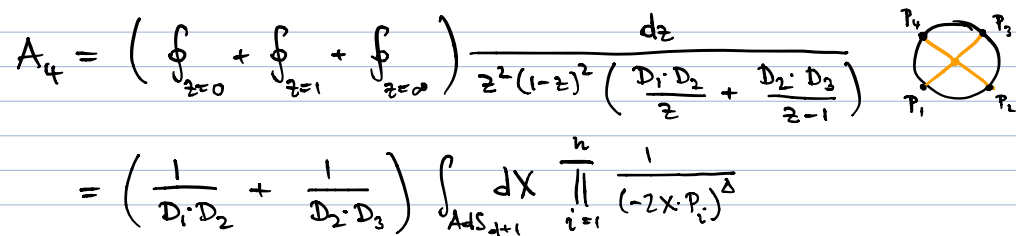 A₄ = ( ∮_{z=0} + ∮_{z=1} + ∮_{z=∞} ) dz / ( z²(1-z)² ( D₁·D₂ / z + D₂·D₃ / (z-1) ) ) P₄ P₃ P₁ P₂
= ( 1 / (D₁·D₂) + 1 / (D₂·D₃) ) ∫_{AdS_{d+1}} dX ∏_{i=1}^{n} 1 / (-2X·P_i)^Δ